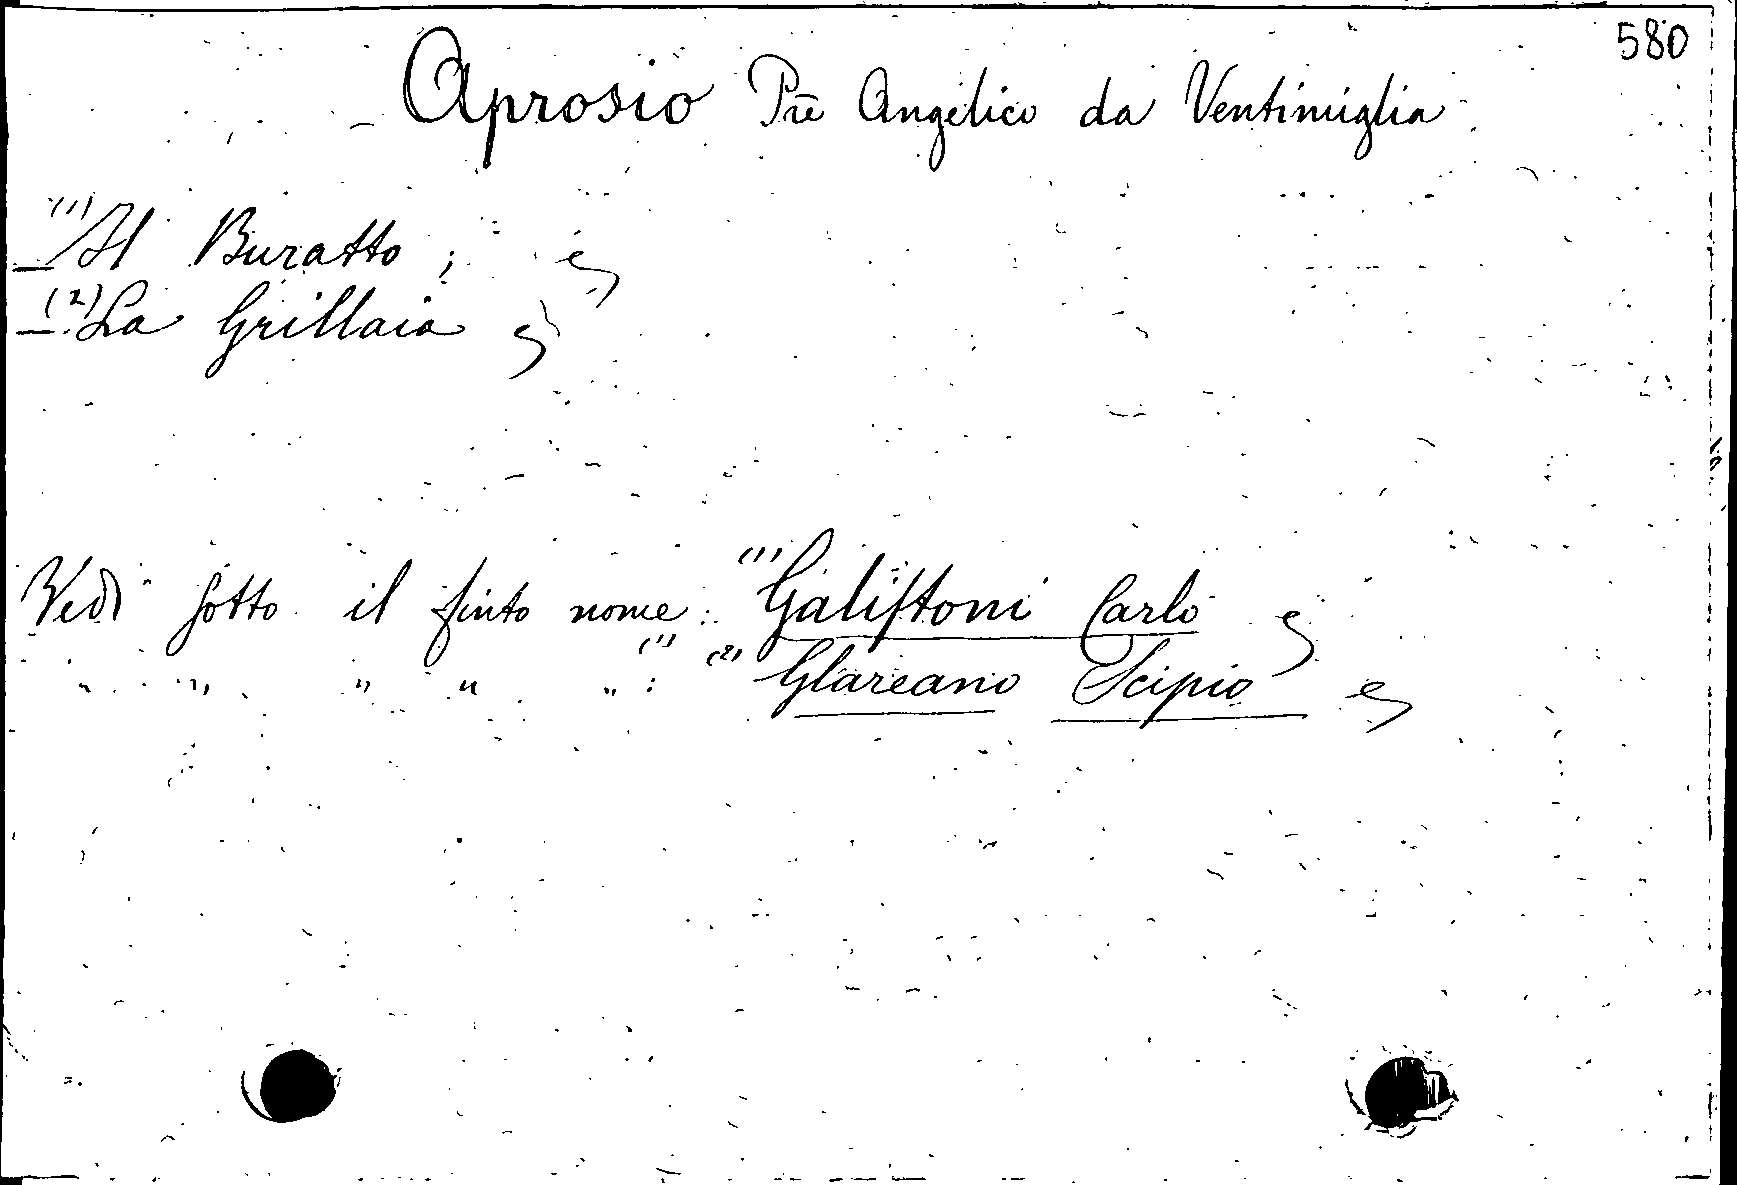 580
Aprosio Prē Angelico da Ventimiglia
(1) Il Buratto ;
(2) La Grillaia
Vedi sotto il finto nome : (1) Galistoni Carlo
" " " " " : (1) (2) Glareano Scipio